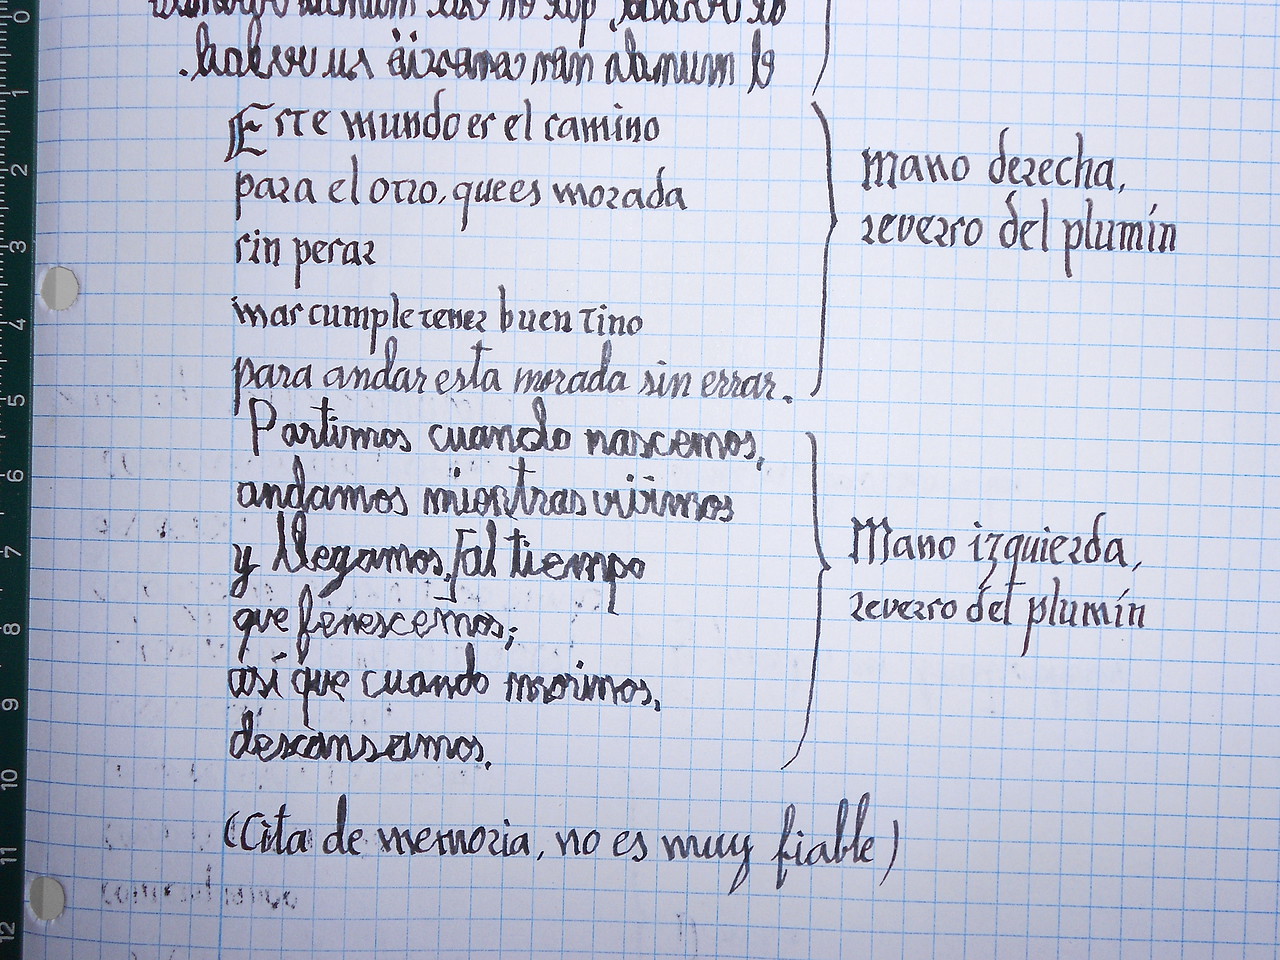 Este mundo es el camino
para el otro, que es morada
sin pesar
mas cumple tener buen tino
para andar esta morada sin errar.
Mano derecha,
reverso del plumín
Partimos cuando nascemos,
andamos mientras vivimos
y llegamos, [al tiempo
que fenescemos;
así que cuando morimos,
descansamos.
Mano izquierda,
reverso del plumín
(Cita de memoria, no es muy fiable)
0
1
2
3
4
5
6
7
8
9
10
11
12